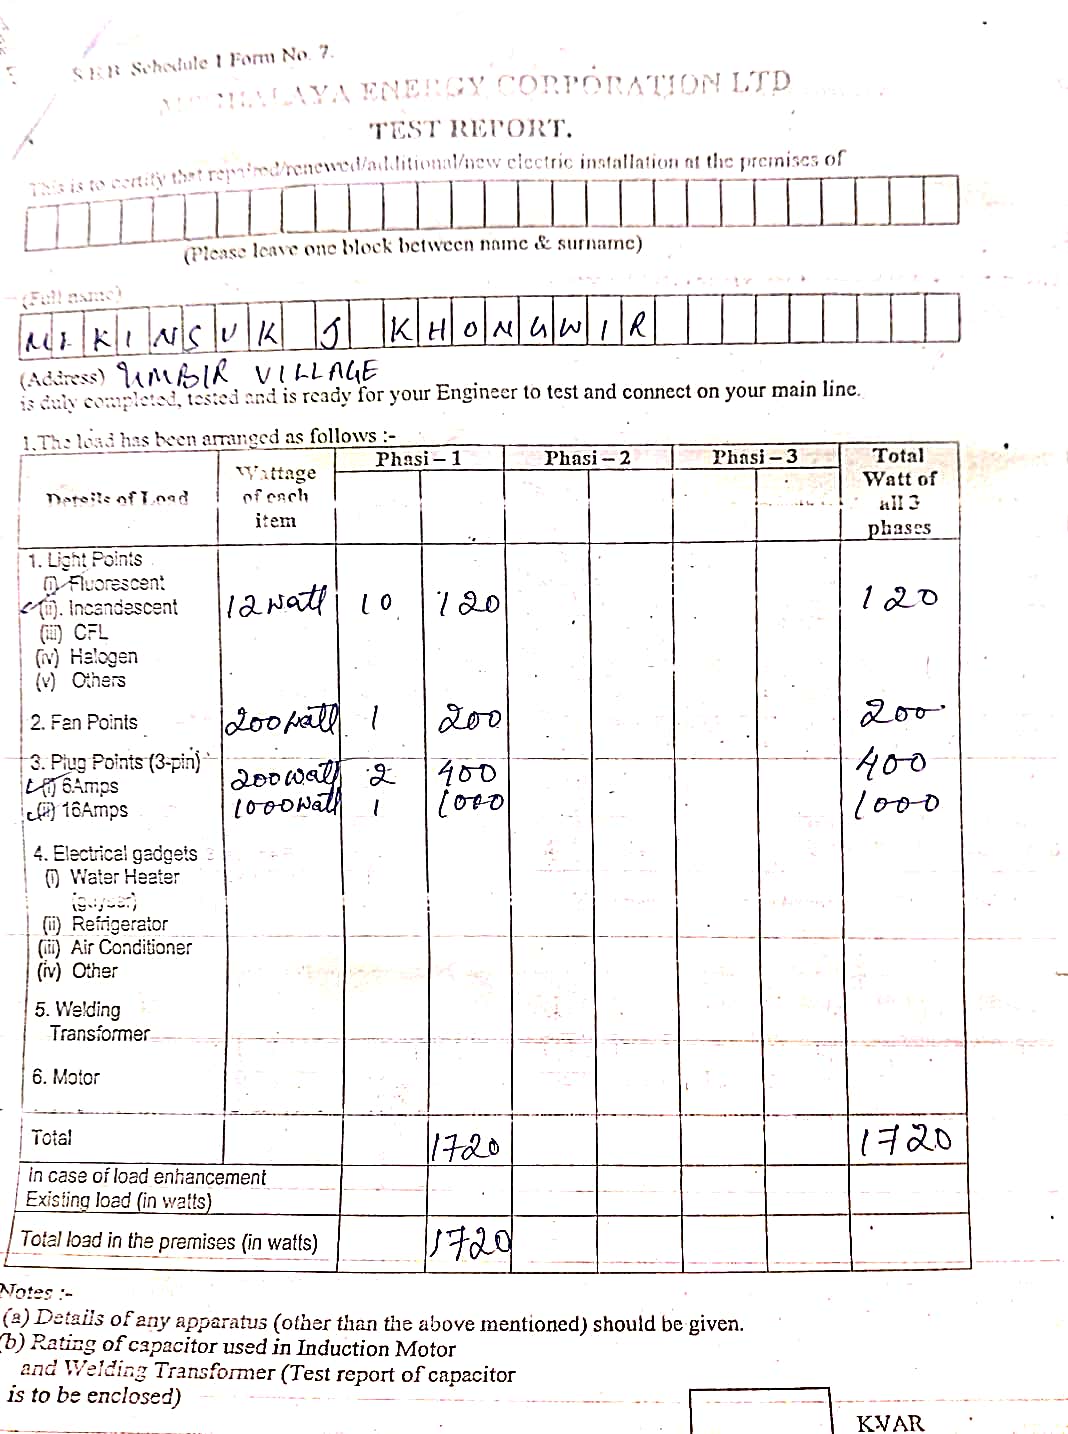 S E B Schedule 1 Form No. 7.
MEGHALAYA ENERGY CORPORATION LTD
TEST REPORT.
This is to certify that repaired/renewed/additional/new electric installation at the premises of
(Please leave one block between name & surname)
(Full name)
MEKINSUK J KHONGWIR
(Address) UMBIR VILLAGE
is duly completed, tested and is ready for your Engineer to test and connect on your main line.
1.The load has been arranged as follows :-
Details of Load Wattage of each item Phasi – 1 Phasi – 2 Phasi – 3 Total Watt of all 3 phases
1. Light Points
(i) Fluorescent
(ii). Incandescent 12 watt 10 120 120
(iii) CFL
(iv) Halogen
(v) Others
2. Fan Points 200 watt 1 200 200
3. Plug Points (3-pin)
(i) 6Amps 200 watt 2 400 400
(ii) 16Amps 1000 watt 1 1000 1000
4. Electrical gadgets
(i) Water Heater
(guyser)
(ii) Refrigerator
(iii) Air Conditioner
(iv) Other
5. Welding
Transformer
6. Motor
Total 1720 1720
In case of load enhancement
Existing load (in watts)
Total load in the premises (in watts) 1720
Notes :-
(a) Details of any apparatus (other than the above mentioned) should be given.
(b) Rating of capacitor used in Induction Motor
and Welding Transformer (Test report of capacitor
is to be enclosed)
KVAR